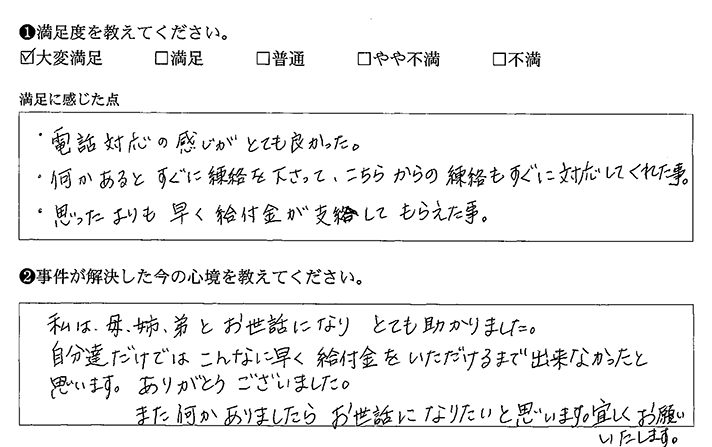 ❶満足度を教えてください。
☑大変満足 □満足 □普通 □やや不満 □不満
満足に感じた点
・電話対応の感じがとても良かった。
・何かあるとすぐに練絡を下さって、こちらからの練絡もすぐに対応してくれた事。
・思ったよりも早く給付金が支給してもらえた事。
❷事件が解決した今の心境を教えてください。
私は、母、姉、弟とお世話になりとても助かりました。
自分達だけではこんなに早く給付金をいただけるまで出来なかったと
思います。ありがとうございました。
また何かありましたらお世話になりたいと思います。宜しくお願い
いたします。